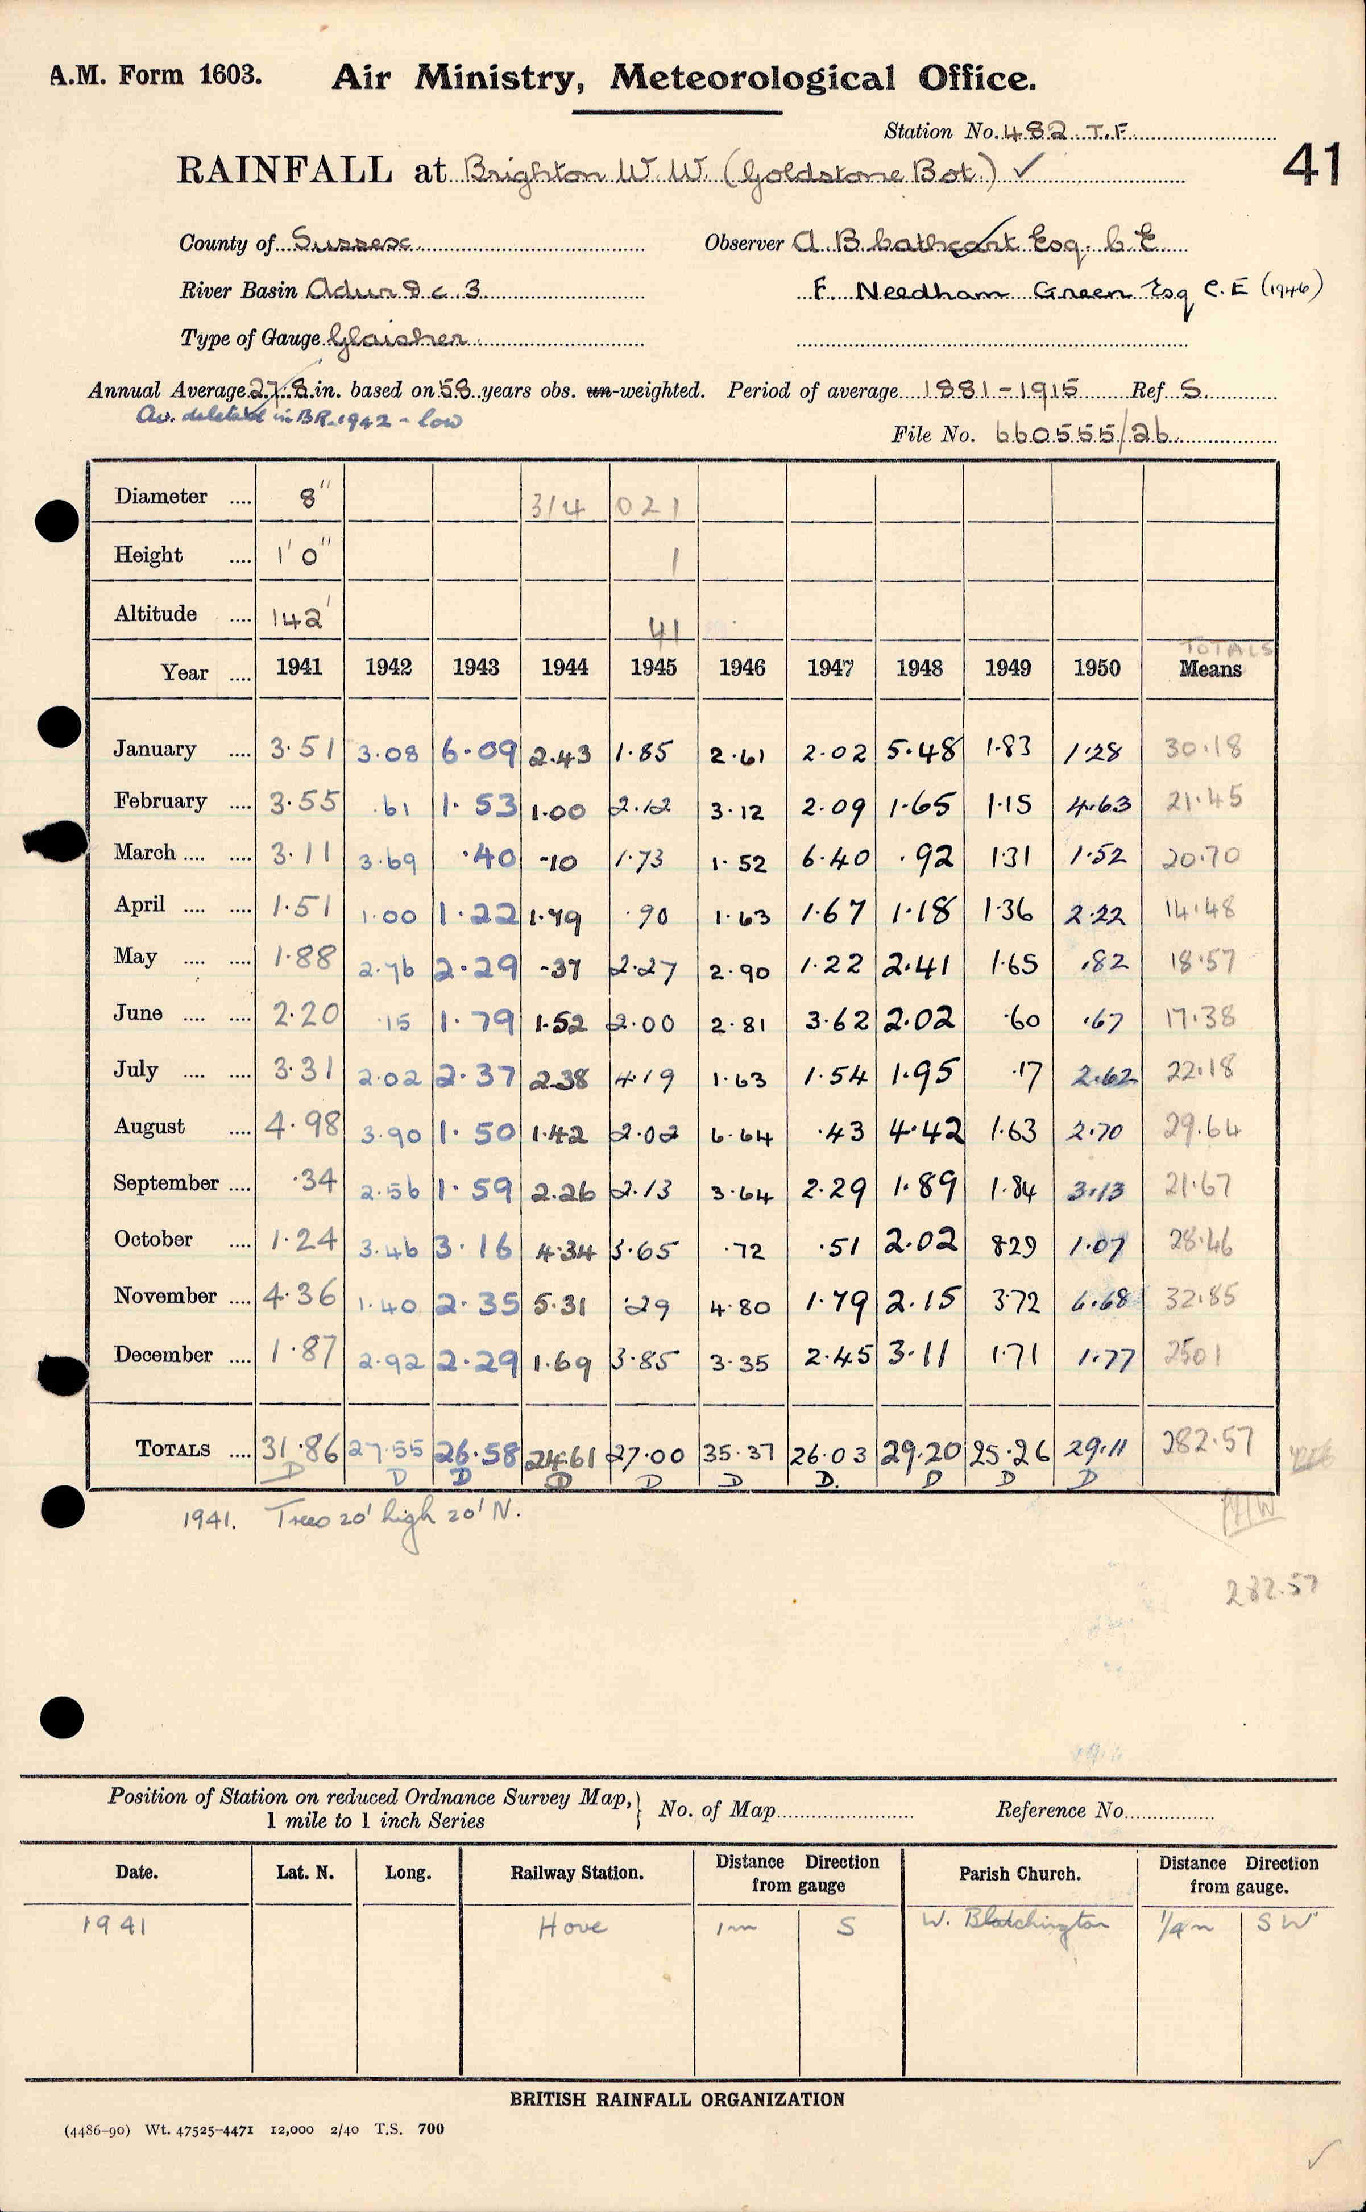 A.M. Form 1603. Air Ministry, Meteorological Office.
Station No. 482 T.F.
RAINFALL at Brighton W.W. (Goldstone Bot.) ✓ 41
County of Sussex Observer A. B Cathcart Esq. C.E
River Basin Adur & c. 3 F. Needham Green Esq C.E (1946)
Type of Gauge Glaisher
Annual Average 27.8 in. based on 58 years obs. un-weighted. Period of average 1881-1915 Ref S.
Av. deleted in BR. 1942 - low
File No. 660555/26
Diameter .... 8" 314 021
Height .... 1' 0" 1
Altitude .... 142' 41
TOTALS
Year .... 1941 1942 1943 1944 1945 1946 1947 1948 1949 1950 Means
January .... 3.51 3.08 6.09 2.43 1.85 2.61 2.02 5.48 1.83 1.28 30.18
February .... 3.55 .61 1.53 1.00 2.12 3.12 2.09 1.65 1.15 4.63 21.45
March .... .... 3.11 3.69 .40 .10 1.73 1.52 6.40 .92 1.31 1.52 20.70
April .... .... 1.51 1.00 1.22 1.79 .90 1.63 1.67 1.18 1.36 2.22 14.48
May .... .... 1.88 2.76 2.29 .37 2.27 2.90 1.22 2.41 1.65 .82 18.57
June .... .... 2.20 .15 1.79 1.52 2.00 2.81 3.62 2.02 .60 .67 17.38
July .... .... 3.31 2.02 2.37 2.38 4.19 1.63 1.54 1.95 .17 2.62 22.18
August .... 4.98 3.90 1.50 1.42 2.02 6.64 .43 4.42 1.63 2.70 29.64
September .... .34 2.56 1.59 2.26 2.13 3.64 2.29 1.89 1.84 3.13 21.67
October .... 1.24 3.46 3.16 4.34 3.65 .72 .51 2.02 8.29 1.07 28.46
November .... 4.36 1.40 2.35 5.31 .29 4.80 1.79 2.15 3.72 6.68 32.85
December .... 1.87 2.92 2.29 1.69 3.85 3.35 2.45 3.11 1.71 1.77 25.01
TOTALS .... 31.86 27.55 26.58 24.61 27.00 35.37 26.03 29.20 25.26 29.11 282.57
D D D D D D D. D D D
1941. Trees 20' high 20' N.
282.57
Position of Station on reduced Ordnance Survey Map,
1 mile to 1 inch Series } No. of Map Reference No.
Date. Lat. N. Long. Railway Station. Distance Direction from gauge Parish Church. Distance Direction from gauge.
1941 Hove 1m S W. Blatchington 1/4m SW
BRITISH RAINFALL ORGANIZATION
(4486-90) Wt. 47525-4471 12,000 2/40 T.S. 700
✓